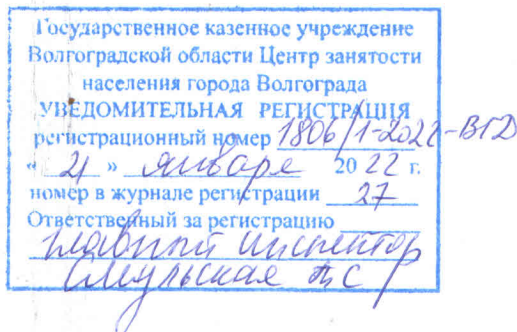 Государственное казенное учреждение
Волгоградской области Центр занятости
населения города Волгограда
УВЕДОМИТЕЛЬНАЯ РЕГИСТРАЦИЯ
регистрационный номер 1806/1-2022-ВГД
« 21 » января 20 22 г.
номер в журнале регистрации 27
Ответственный за регистрацию
главный инспектор
Смульская